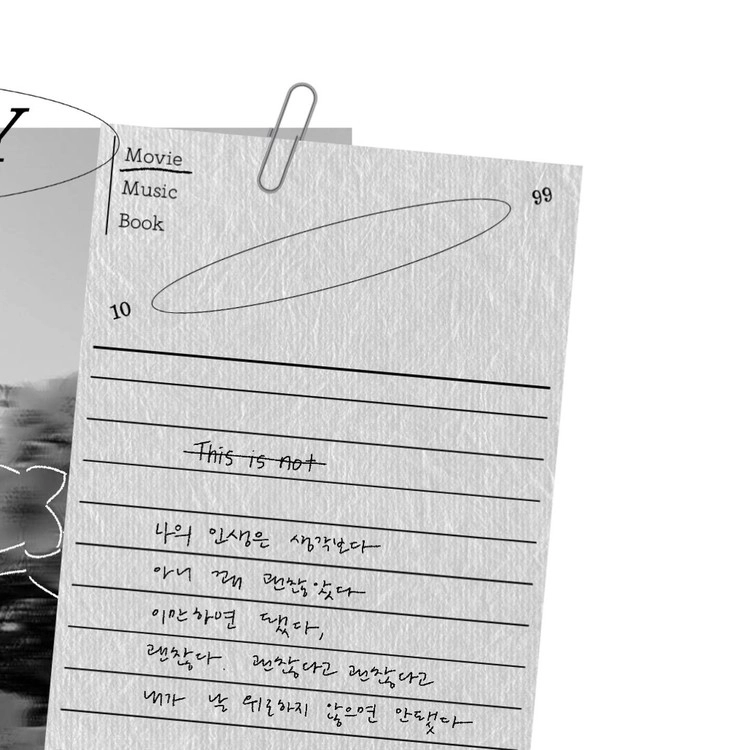 Y
Movie
Music
Book
99
10
This is not
나의 인생은 생각보다
아니 꽤 괜찮았다
이만하면 됐다,
괜찮다. 괜찮다고 괜찮다고
내가 날 위로하지 않으면 안됐다